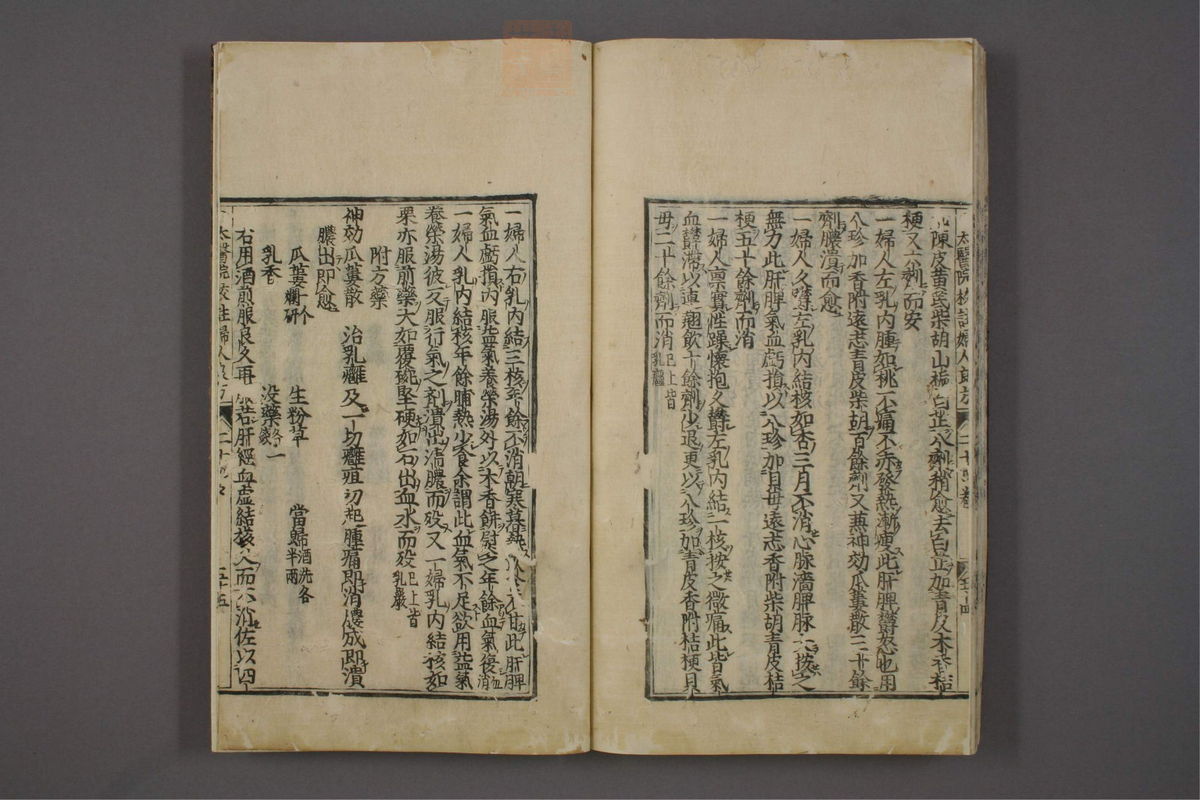 太醫院校註婦人良方 二十四卷
陳皮黃芪柴胡山梔白芷八劑稍愈去白芷加青皮木香桔
梗又六劑而安
一婦人左乳內腫如桃不痛不赤發熱漸瘦此肝脾鬱怒也用
八珍加香附遠志青皮柴胡百餘劑又兼神効瓜蔞散三十餘
劑膿潰而愈
一婦人久鬱左乳內結核如杏三月不消心脉濇脾脉大按之
無力此肝脾氣血虧損以八珍加貝母遠志香附柴胡青皮桔
梗五十餘劑而消
一婦人禀實性躁懷抱久鬱左乳內結一核按之微痛此皆氣
血鬱滯以連翹飲十餘劑少退更以八珍加青皮香附桔梗貝
母二十餘劑而消已上皆乳癰
一婦人右乳內結三核年餘不消朝寒暮熱此肝脾
氣血虧損內服益氣養榮湯外以木香餅熨之年餘血氣復消
一婦人乳內結核年餘晡熱少食余謂此血氣不足欲用益氣
養榮湯彼反服行氣之劑潰出清膿而歿又一婦乳內結核如
栗亦服前藥大如覆碗堅硬如石出血水而歿已上皆乳巖
附方藥
神効瓜蔞散 治乳癰及一切癰疽初起腫痛即消膿成即潰
膿出即愈
瓜蔞一个爛研 生粉草 當歸酒洗各半兩
乳香 没藥各一錢
右用酒煎服良久再服若肝經血虛結核久而不消佐以四
太醫院校註婦人良方 二十四卷 五十五